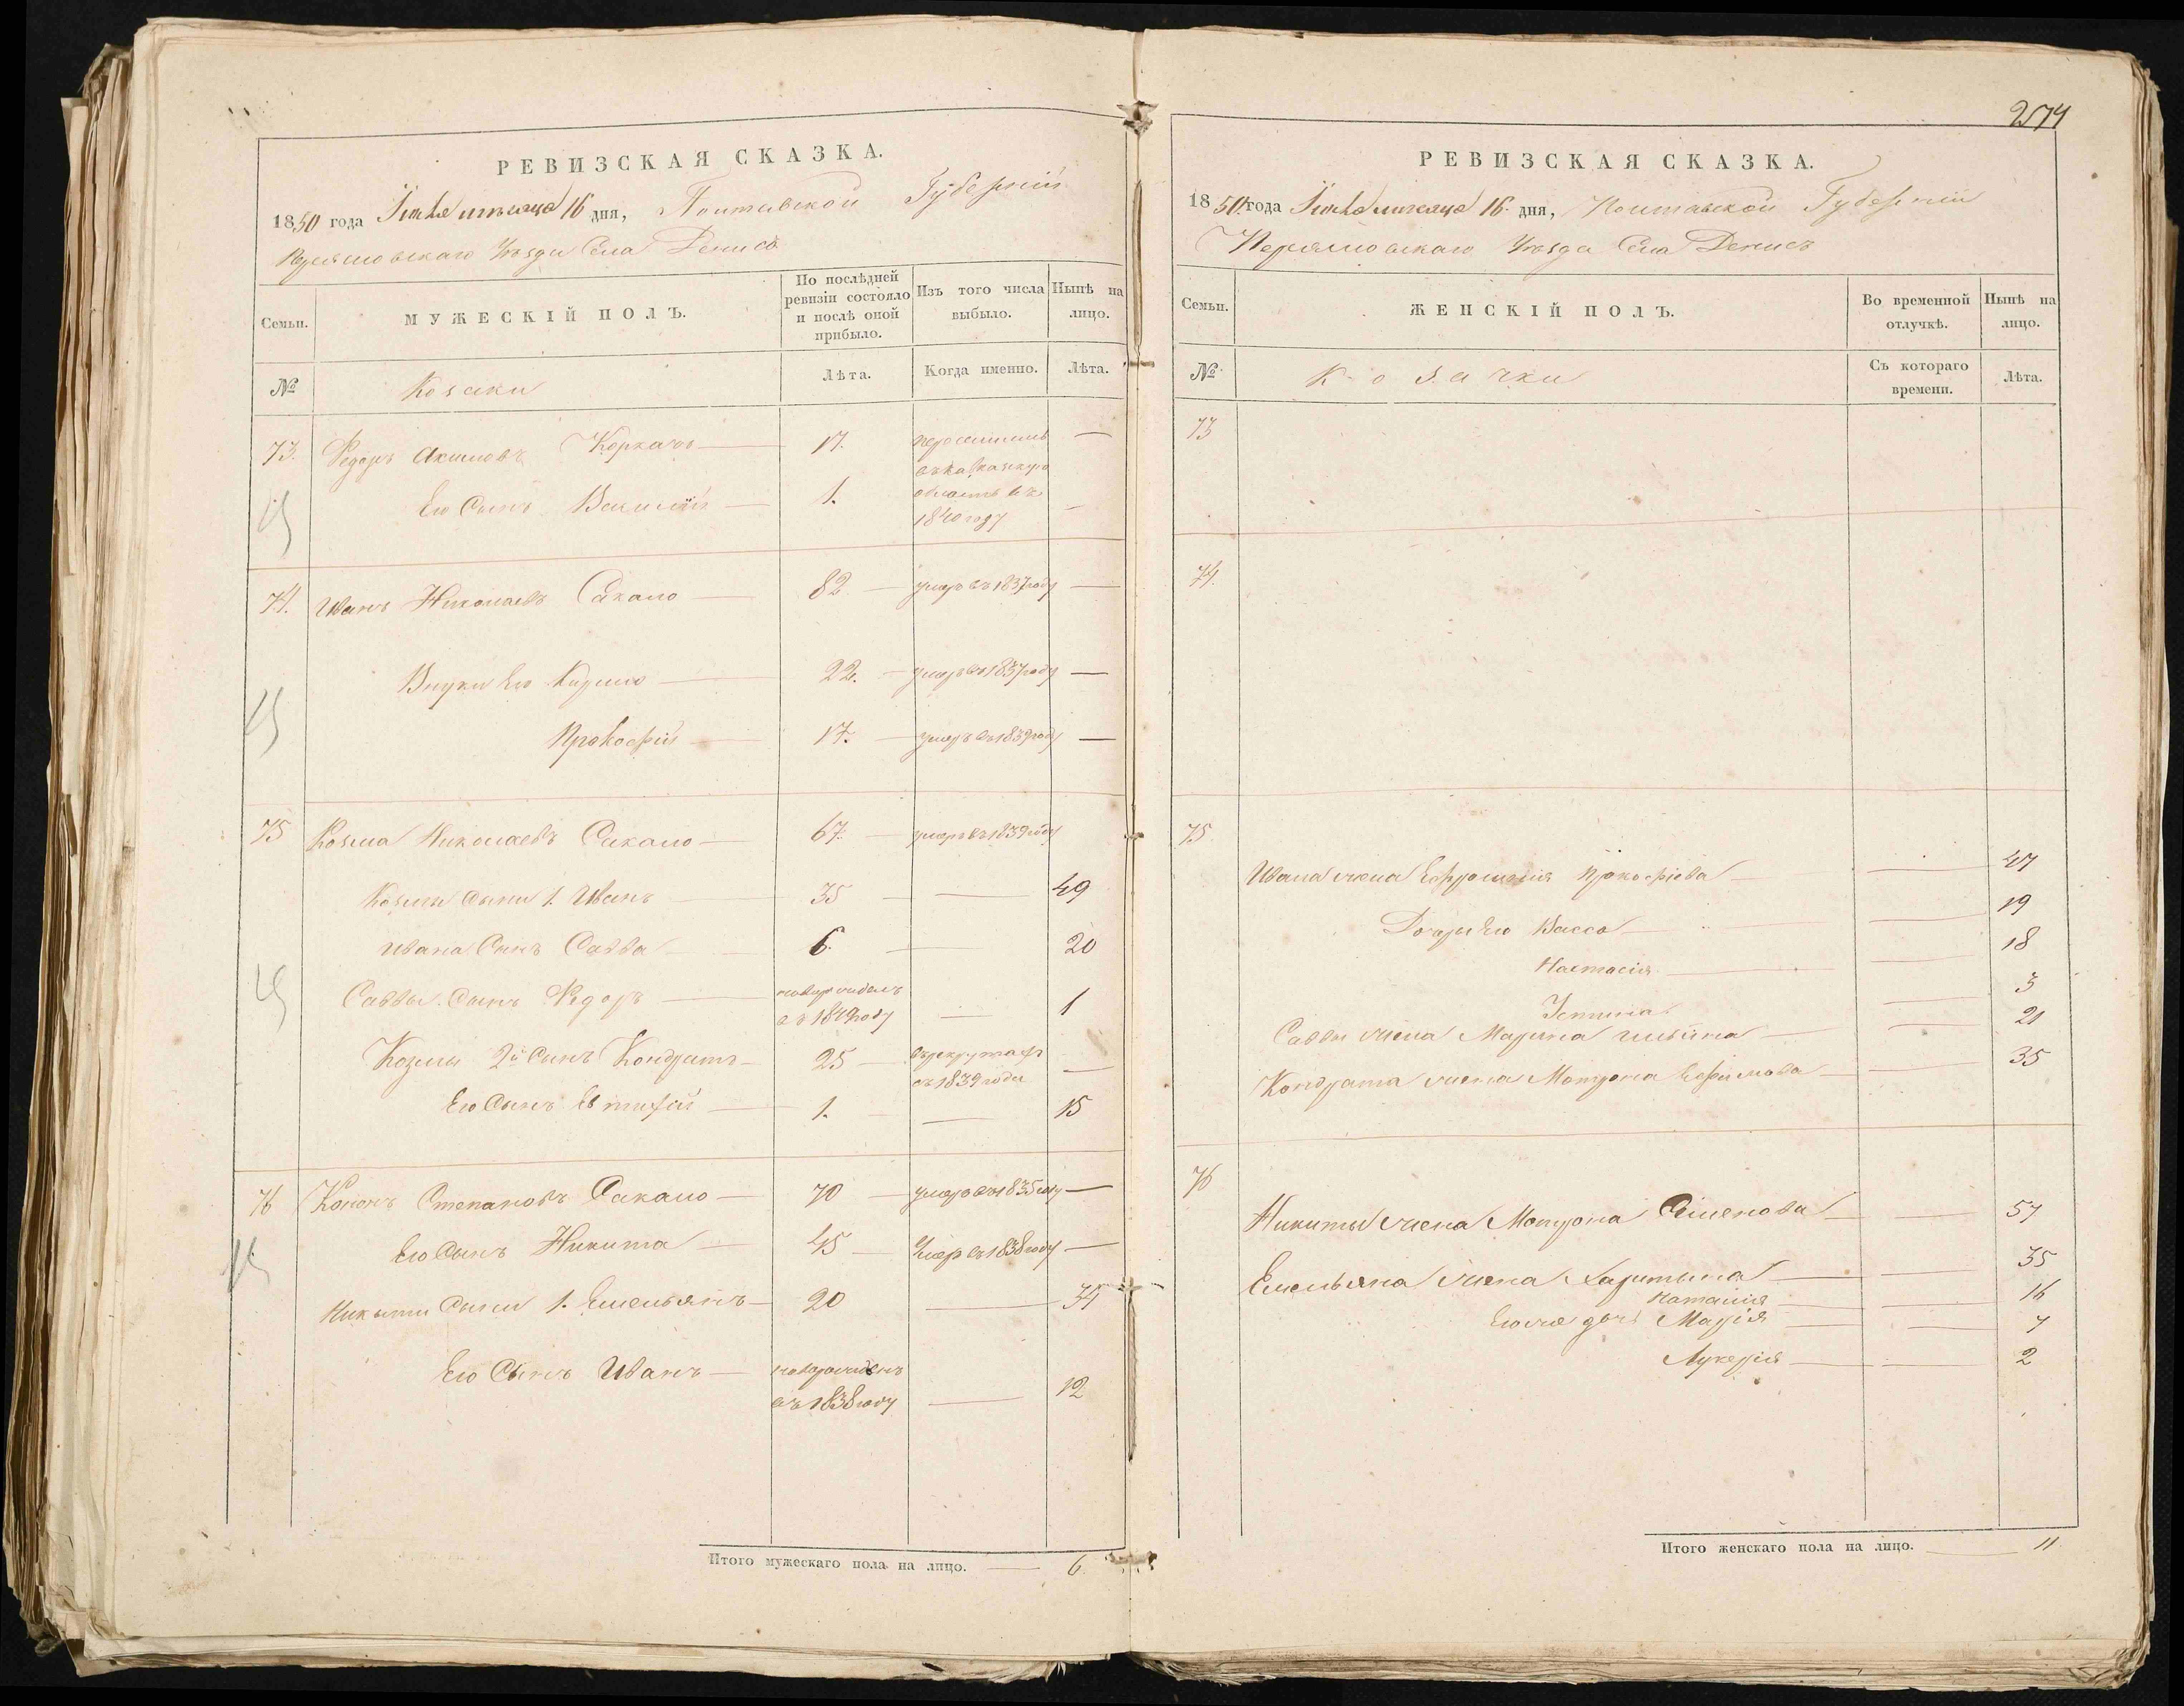 РЕВИЗСКАЯ СКАЗКА.
1850 года Июля месяца 16 дня, Полтавской Губерніи
Переяславскаго Уезда Села Денисъ
Семьи.
МУЖЕСКІЙ ПОЛЪ.
По послѣдней ревизіи состояло и послѣ оной прибыло.
Изъ того числа выбыло.
Нынѣ на лицо.
№
Козаки
Лѣта.
Когда именно.
Лѣта.
73. Федоръ Акимовъ Коркачъ — 17. переселились —
въ Кавказкую
Его Сынъ Василій — 1. область въ —
1840 году
74. Иванъ Николаевъ Сакало — 82 — умеръ въ 1837 году —
Внуки Его Кирило — 22. — умеръ въ 1837 году —
Прокофій — 17. — умеръ въ 1839 году —
75 Козма Николаевъ Сакало — 67. — умеръ въ 1839 году
Козмы Сыны 1. Иванъ — 35 — — 49
Ивана Сынъ Савва — 6. — 20
Саввы Сынъ Федоръ — новорожденъ
въ 1849 году — 1
Козмы 2й Сынъ Кондратъ — 25 — въ рекрутахъ
съ 1839 года —
Его Сынъ Евтифій — 1. — — 15
76 Кононъ Степановъ Сакало — 70 — умеръ въ 1835 году —
Его Сынъ Никита — 45 — Умеръ въ 1838 году —
Никиты Сыны 1. Емельянъ — 20 — 35
Его Сынъ Иванъ — новорожденъ
въ 1838 году — 12
Итого мужескаго пола на лицо. — 6.
274
РЕВИЗСКАЯ СКАЗКА.
1850 года Июля месяца 16 дня, Полтавской Губерніи
Переяславскаго Уезда Села Денисъ
Семьи.
ЖЕНСКІЙ ПОЛЪ.
Во временной отлучкѣ.
Нынѣ на лицо.
№
Козачки
Съ котораго времени.
Лѣта.
73
74.
75.
Ивана жена Ефросинія Прокофіева — — 47
Дочери Его Васса — — 19
Настасія — — 18
Устина — 3
Саввы жена Марина Ильина — — 21
Кондрата жена Мотрона Ефимова — — 35
76
Никиты жена Мотрона Семенова — — 57
Емельяна жена Харитына — — 35
Наталія — — 16
Его же дочь Марія — — 7
Лукерія — — 2
Итого женскаго пола на лицо. — 11